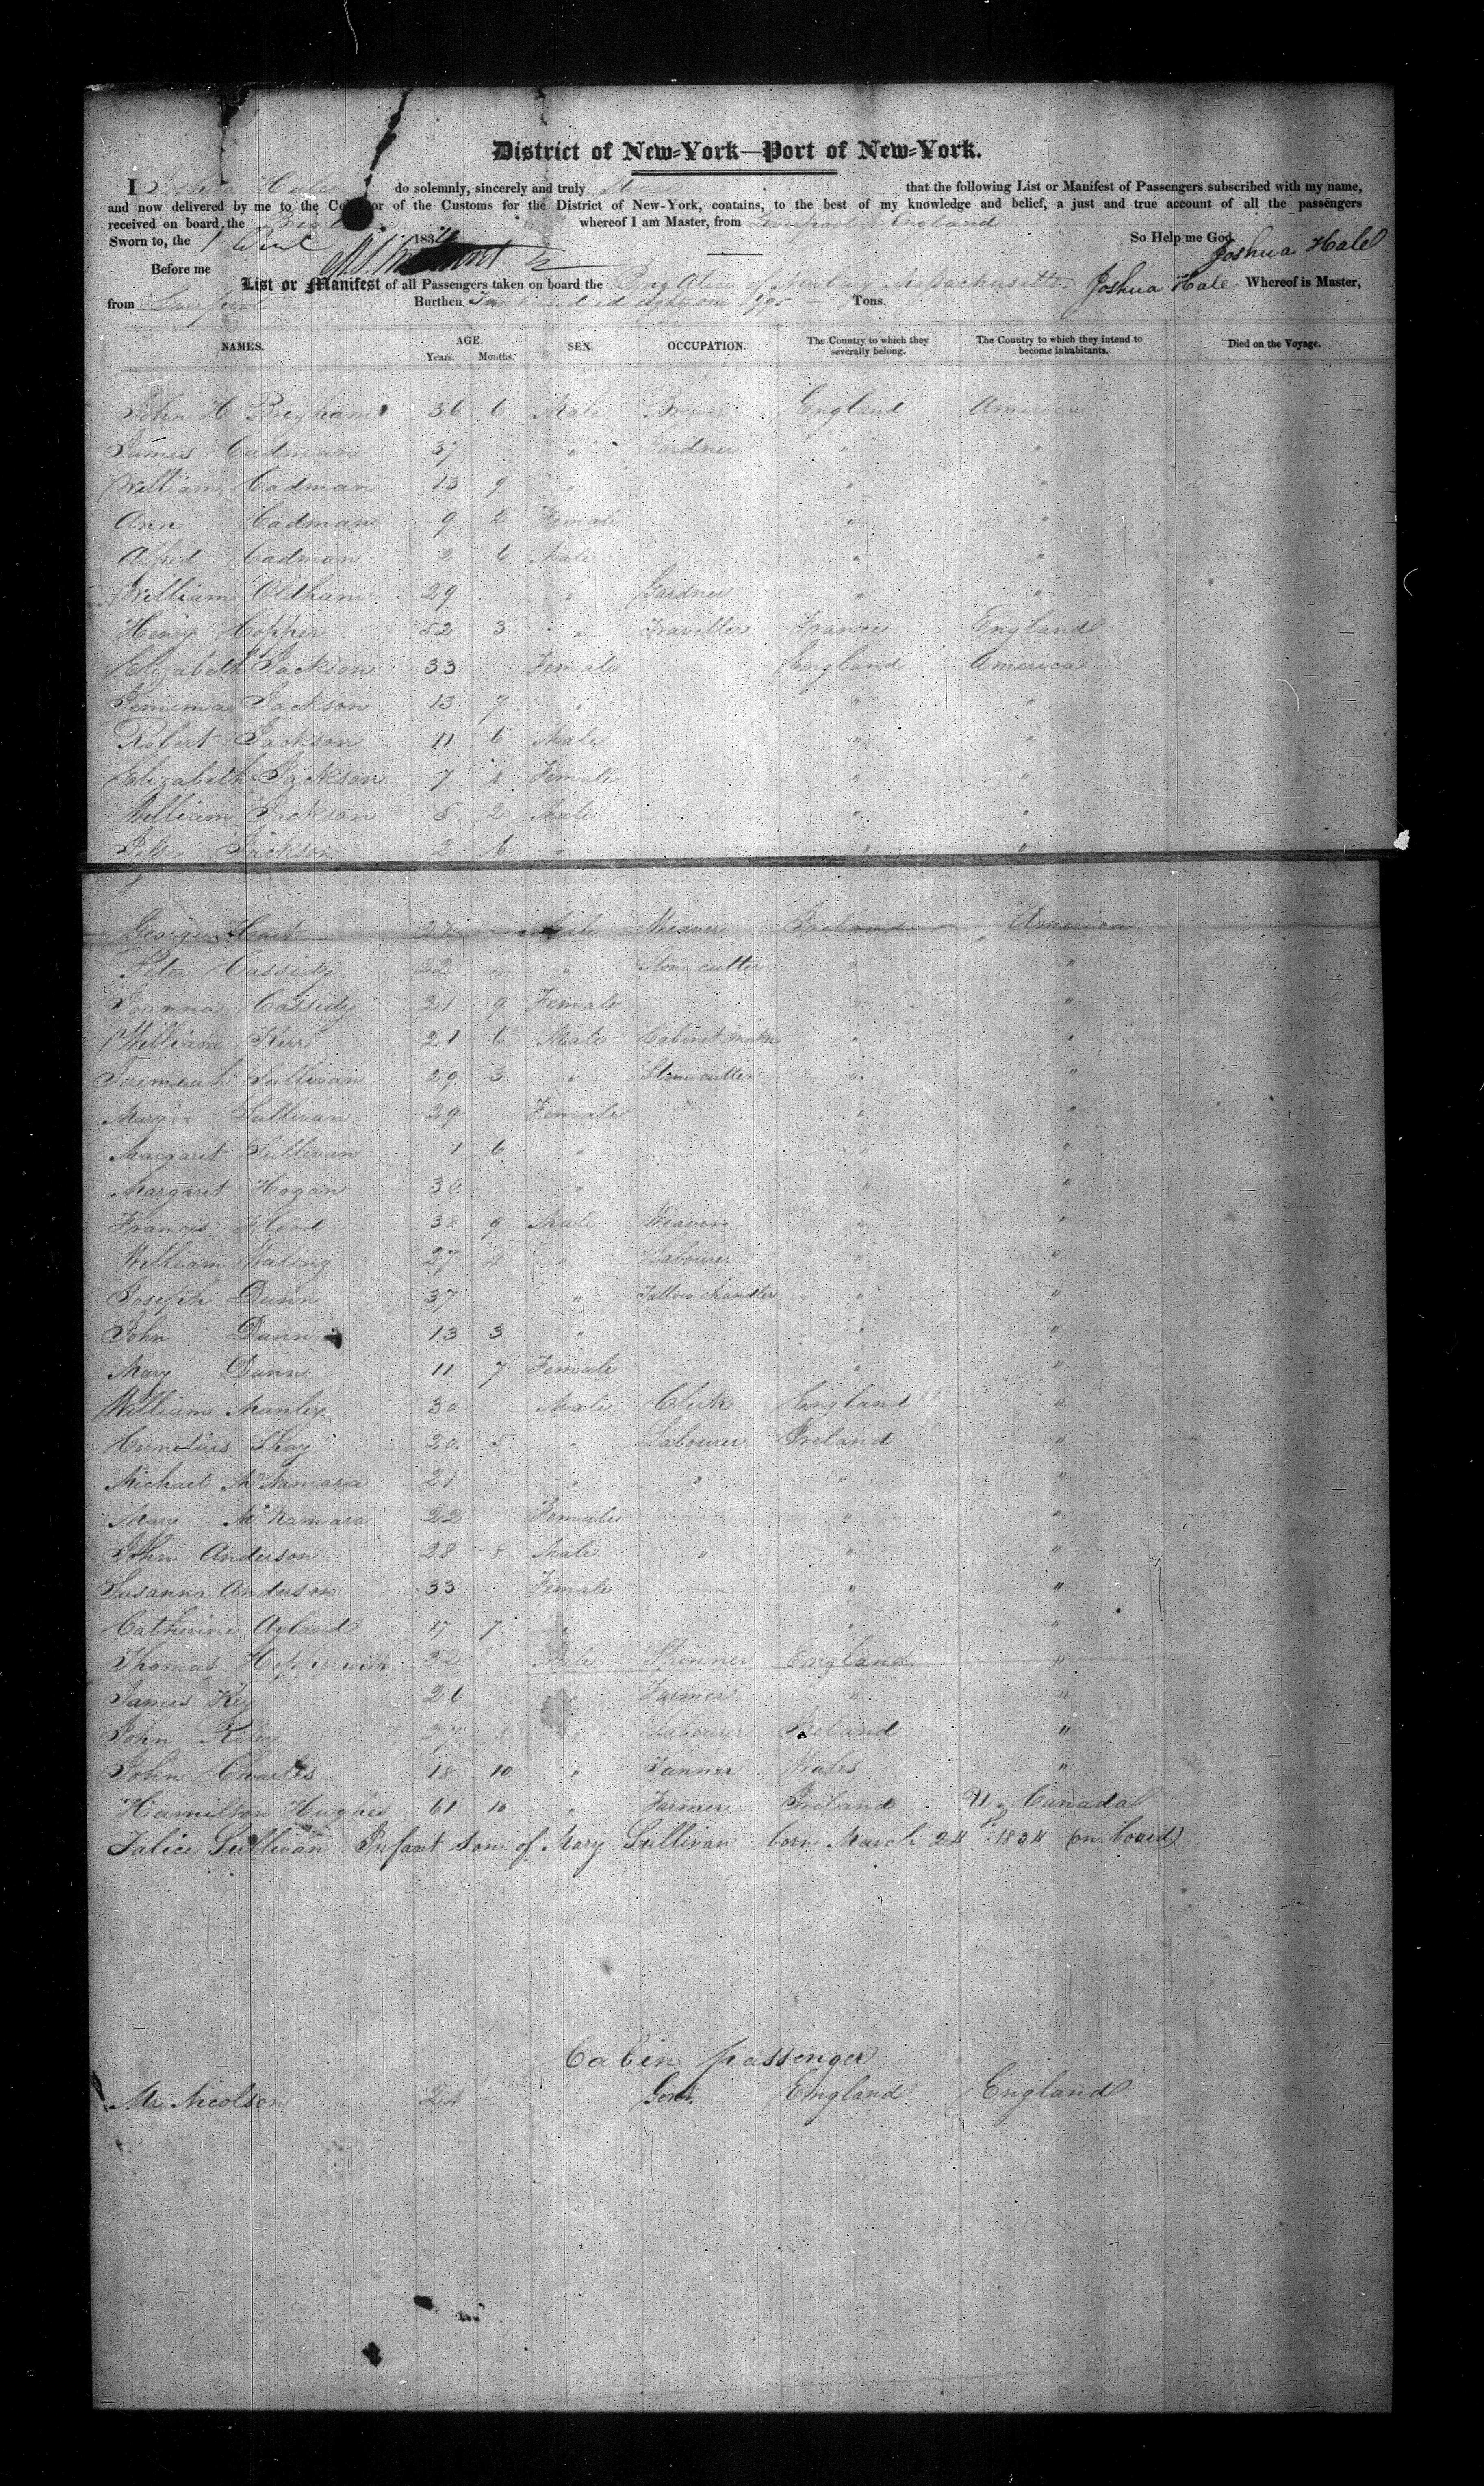 District of New-York—Port of New-York.
I Joshua Hale do solemnly, sincerely and truly Swear that the following List or Manifest of Passengers subscribed with my name,
and now delivered by me to the Co or of the Customs for the District of New-York, contains, to the best of my knowledge and belief, a just and true account of all the passengers
received on board the Brig whereof I am Master, from Liverpool England
Sworn to, the 1 1834 So Help me God.
Joshua Hale
Before me
List or Manifest of all Passengers taken on board the Brig Alice of Newbury Massachusetts Joshua Hale Whereof is Master,
from Liverpool Burthen Two hundred eighty one /95 Tons.
NAMES. AGE. SEX. OCCUPATION. The Country to which they severally belong. The Country to which they intend to become inhabitants. Died on the Voyage.
Years. Months.
John H Bregham 36 6 Male Brewer England America
James Cadman 37 " Gardner " "
William Cadman 13 9 " " "
Ann Cadman 9 2 Female " "
Alfred Cadman 2 6 Male " "
William Oldham 29 " Gardner " "
Henry Copper 52 3 " Traveller France England
Elizabeth Jackson 33 Female England America
Jemima Jackson 13 7 " " "
Robert Jackson 11 6 Male " "
Elizabeth Jackson 7 4 Female " "
William Jackson 5 2 Male " "
John Jackson 2 6 " " "
George Heart 27 Male Weaver Ireland America
Peter Cassidy 22 " Stone cutter " "
Joanna Cassidy 21 9 Female " "
William Kerr 21 6 Male Cabinet maker " "
Jeremiah Sullivan 29 3 " Stone cutter " "
Mary Sullivan 29 Female " "
Margaret Sullivan 1 6 " " "
Margaret Hogan 30 " " "
Francis Flood 38 9 Male Weaver " "
William Waling 27 4 " Labourer " "
Joseph Dunn 37 " Tallow chandler " "
John Dunn 13 3 " " "
Mary Dunn 11 7 Female " "
William Manley 30 Male Clerk England "
Cornelius Shay 20 5 " Labourer Ireland "
Michael McNamara 21 " " " "
Mary McNamara 22 Female " "
John Anderson 28 8 Male " " "
Susanna Anderson 33 Female " "
Catherine Ayland 17 7 " " "
Thomas Hopperwith 32 Male Spinner England "
James Key 26 " Farmer " "
John Riley 27 " Labourer Ireland "
John Charles 18 10 " Tanner Wales "
Hamilton Hughes 61 10 " Farmer Ireland U. Canada
Talice Sullivan Infant son of Mary Sullivan born March 24th 1834 (on board)
Cabin passenger
Mr. Nicolson 24 Gent. England England